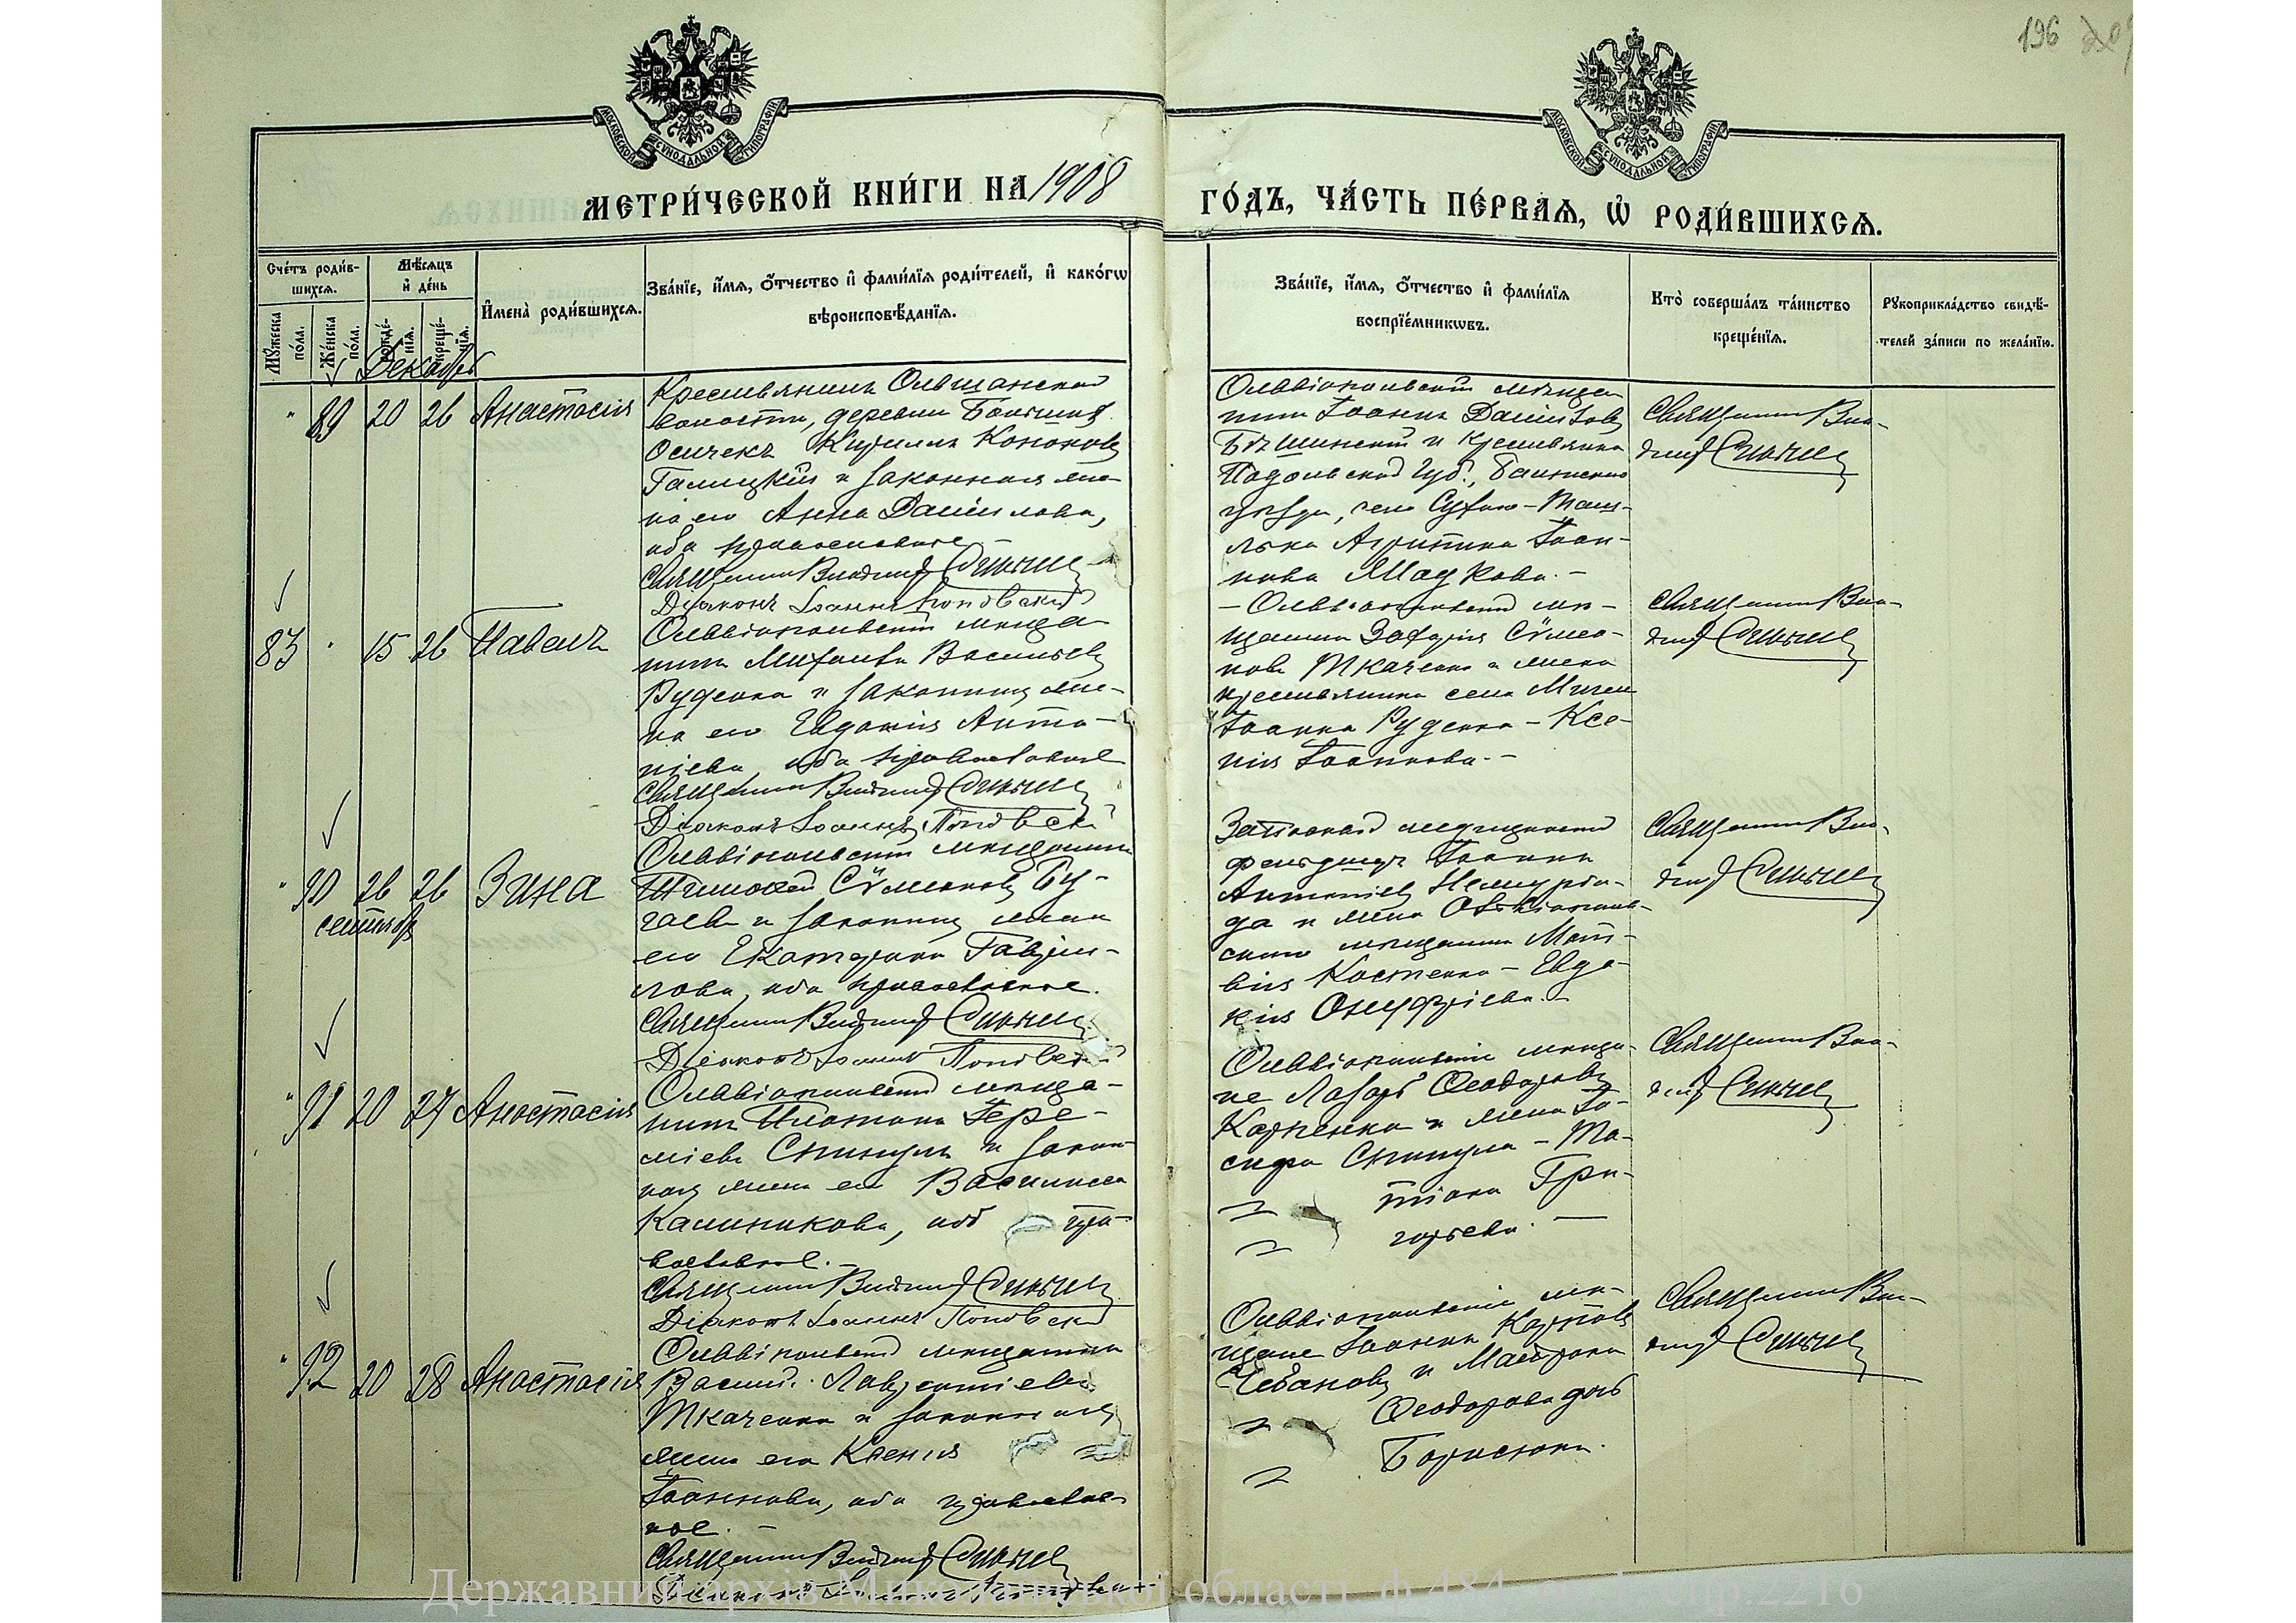 196
МОСКОВСКОЙ СѴНОДАЛЬНОЙ ТИПОГРАФІИ
МОСКОВСКОЙ СѴНОДАЛЬНОЙ ТИПОГРАФІИ
МЕТРИ́ЧЕСКОЙ КНИ́ГИ НА 1908
ГО́ДЪ, ЧА́СТЬ ПЕ́РВАѦ, Ѡ҆ РОДИ́ВШИХСѦ.
Сче́тъ роди́в-
шихсѧ.
Мꙋ́жеска
по́ла.
Же́нска
по́ла.
Мѣ́сѧцъ
и҆ де́нь
рожде́-
нїѧ.
креще́-
нїѧ.
И҆мена̀ роди́вшихсѧ.
Зва́нїе, и҆́мѧ, ѻ҆́тчество и҆ фами́лїѧ роди́телей, и҆ како́гѡ
вѣроисповѣ́данїѧ.
Зва́нїе, и҆́мѧ, ѻ҆́тчество и҆ фами́лїѧ
воспрїе́мникѡвъ.
Кто̀ соверша́лъ та́инство
креще́нїѧ.
Рꙋкоприкла́дство свидѣ́-
телей за́писи по жела́нїю.
Декабрь
" 89 20 26 Анастасія
Крестьянинъ Ольшанской
волости, деревни Большихъ
Осичекъ Кириллъ Кононовъ
Галицкій и законная же-
на его Анна Даніилова,
оба православные
Священникъ Владимиръ
Діаконъ Іоаннъ Поповскій
Ольвіопольскій мѣща-
нинъ Іоаннъ Даніиловъ
и крестьянка
Подольской губ., Балтского
уѣзда, села Сухого-Таш-
лыка Агрипина Іоан-
нова
Священникъ Вла-
димиръ
83 " 15 26 Павелъ
Ольвіопольскій мѣща-
нинъ Михаилъ Васильевъ
Руденко и законная же-
на его Евдокія Анто-
ніева, оба православные
Священникъ Владимиръ
Діаконъ Іоаннъ Поповскій
- Ольвіопольскій мѣ-
щанинъ Захарія Сѵмео-
новъ Ткаченко и жена
крестьянина села
Іоанна Руденко - Ксе-
нія Іоаннова. -
Священникъ Вла-
димиръ
" 90 26 26 Зина
сентябрь
Ольвіопольскій мѣщанинъ
Тимофей Сѵмеоновъ Бу-
гаевъ и законная жена
его Екатерина Гаврiи-
лова, оба православные.
Священникъ Владимиръ
Діаконъ Іоаннъ Поповскій
Запасной медицинскій
фельдшеръ Іоаннъ
Антоніевъ
да и жена Ольвіополь-
скаго мѣщанина Мат-
вія Костенко - Евдо-
кія Онуфріева. -
Священникъ Вла-
димиръ
" 91 20 27 Анастасія
Ольвіопольскій мѣща-
нинъ Платонъ Іере-
міевъ и закон-
ная жена его Василисса
Калиникова, оба пра-
вославные. -
Священникъ Владимиръ
Діаконъ Іоаннъ Поповскій
Ольвіопольскіе мѣща-
не Лазарь Ѳеодоровъ
Карпенко и жена Іо-
сифа - Та-
тіана Гри-
горьева. -
Священникъ Вла-
димиръ
" 92 20 28 Анастасія
Ольвіопольскій мѣщанинъ
Василій Лаврентіевъ
Ткаченко и законная
жена его Ксенія
Іоаннова, оба православ-
ные. -
Священникъ Владимиръ
Ольвіопольскіе мѣ-
щане Іоаннъ Карповъ
Чебановъ и Матрона
Ѳеодорова дочь
Борисюка.
Священникъ Вла-
димиръ
Державний архів Миколаївської області, ф.484, спр.2216